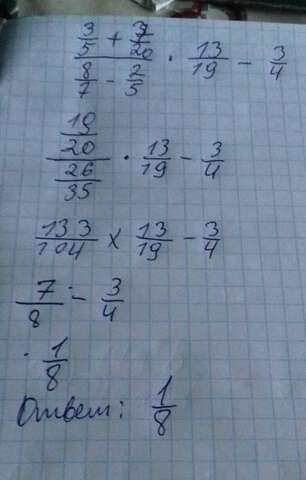 (3/5 + 7/20)/(8/7 - 2/5) · 13/19 - 3/4
(19/20)/(26/35) · 13/19 - 3/4
133/104 × 13/19 - 3/4
7/8 - 3/4
1/8
Ответ: 1/8